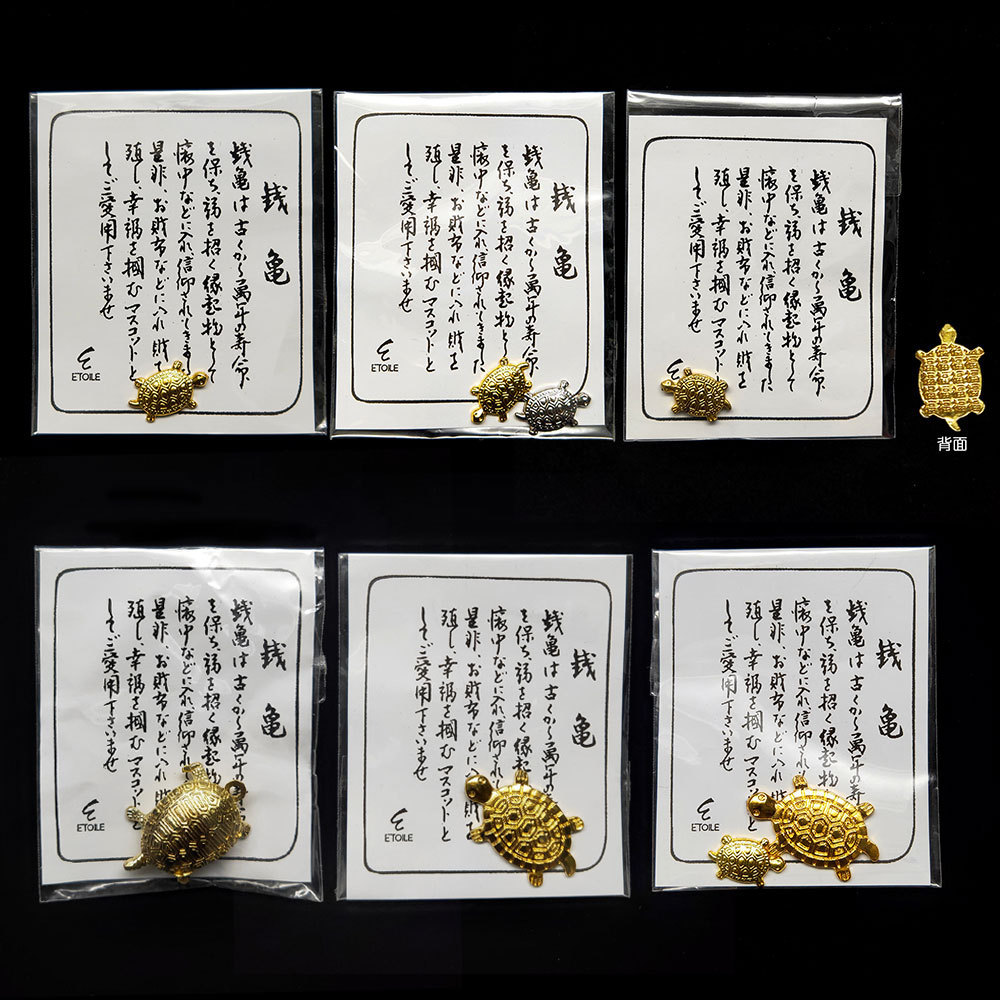 銭亀
銭亀は古くから萬年の寿命
を保ち福を招く縁起物として
懐中などに入れ信仰されてきまし
是非、お財布などに入れ財を
殖し、幸福を掴むマスコットと
してご愛用下さいませ
ETOILE
銭亀
銭亀は古くから萬年の寿命
を保ち福を招く縁起物として
懐中などに入れ信仰されてきました
是非、お財布などに入れ財を
殖し、幸福を掴むマスコットと
してご愛用下さいませ
ETOILE
銭亀
銭亀は古くから萬年の寿命
を保ち福を招く縁起物として
懐中などに入れ信仰されてきました
是非、お財布などに入れ財を
殖し、幸福を掴むマスコットと
してご愛用下さいませ
ETOILE
背面
銭亀
銭亀は古くから萬年の
を保ち福を招く縁起物
懐中などに入れ信仰
是非、お財布などに入れ
殖し、幸福を掴むマスコット
してご愛用下さいませ
ETOILE
銭亀
銭亀は古くから萬年の
を保ち福を招く縁起物
懐中などに入れ信仰
是非、お財布などに入れ財を
殖し、幸福を掴むマスコットと
してご愛用下さいませ
ETOILE
銭亀
銭亀は古くから萬年の
を保ち福を招く縁起物
懐中などに入れ信仰
是非、お財布などに入れ
殖し、幸福を掴むマスコットと
してご愛用下さいませ
ETOILE